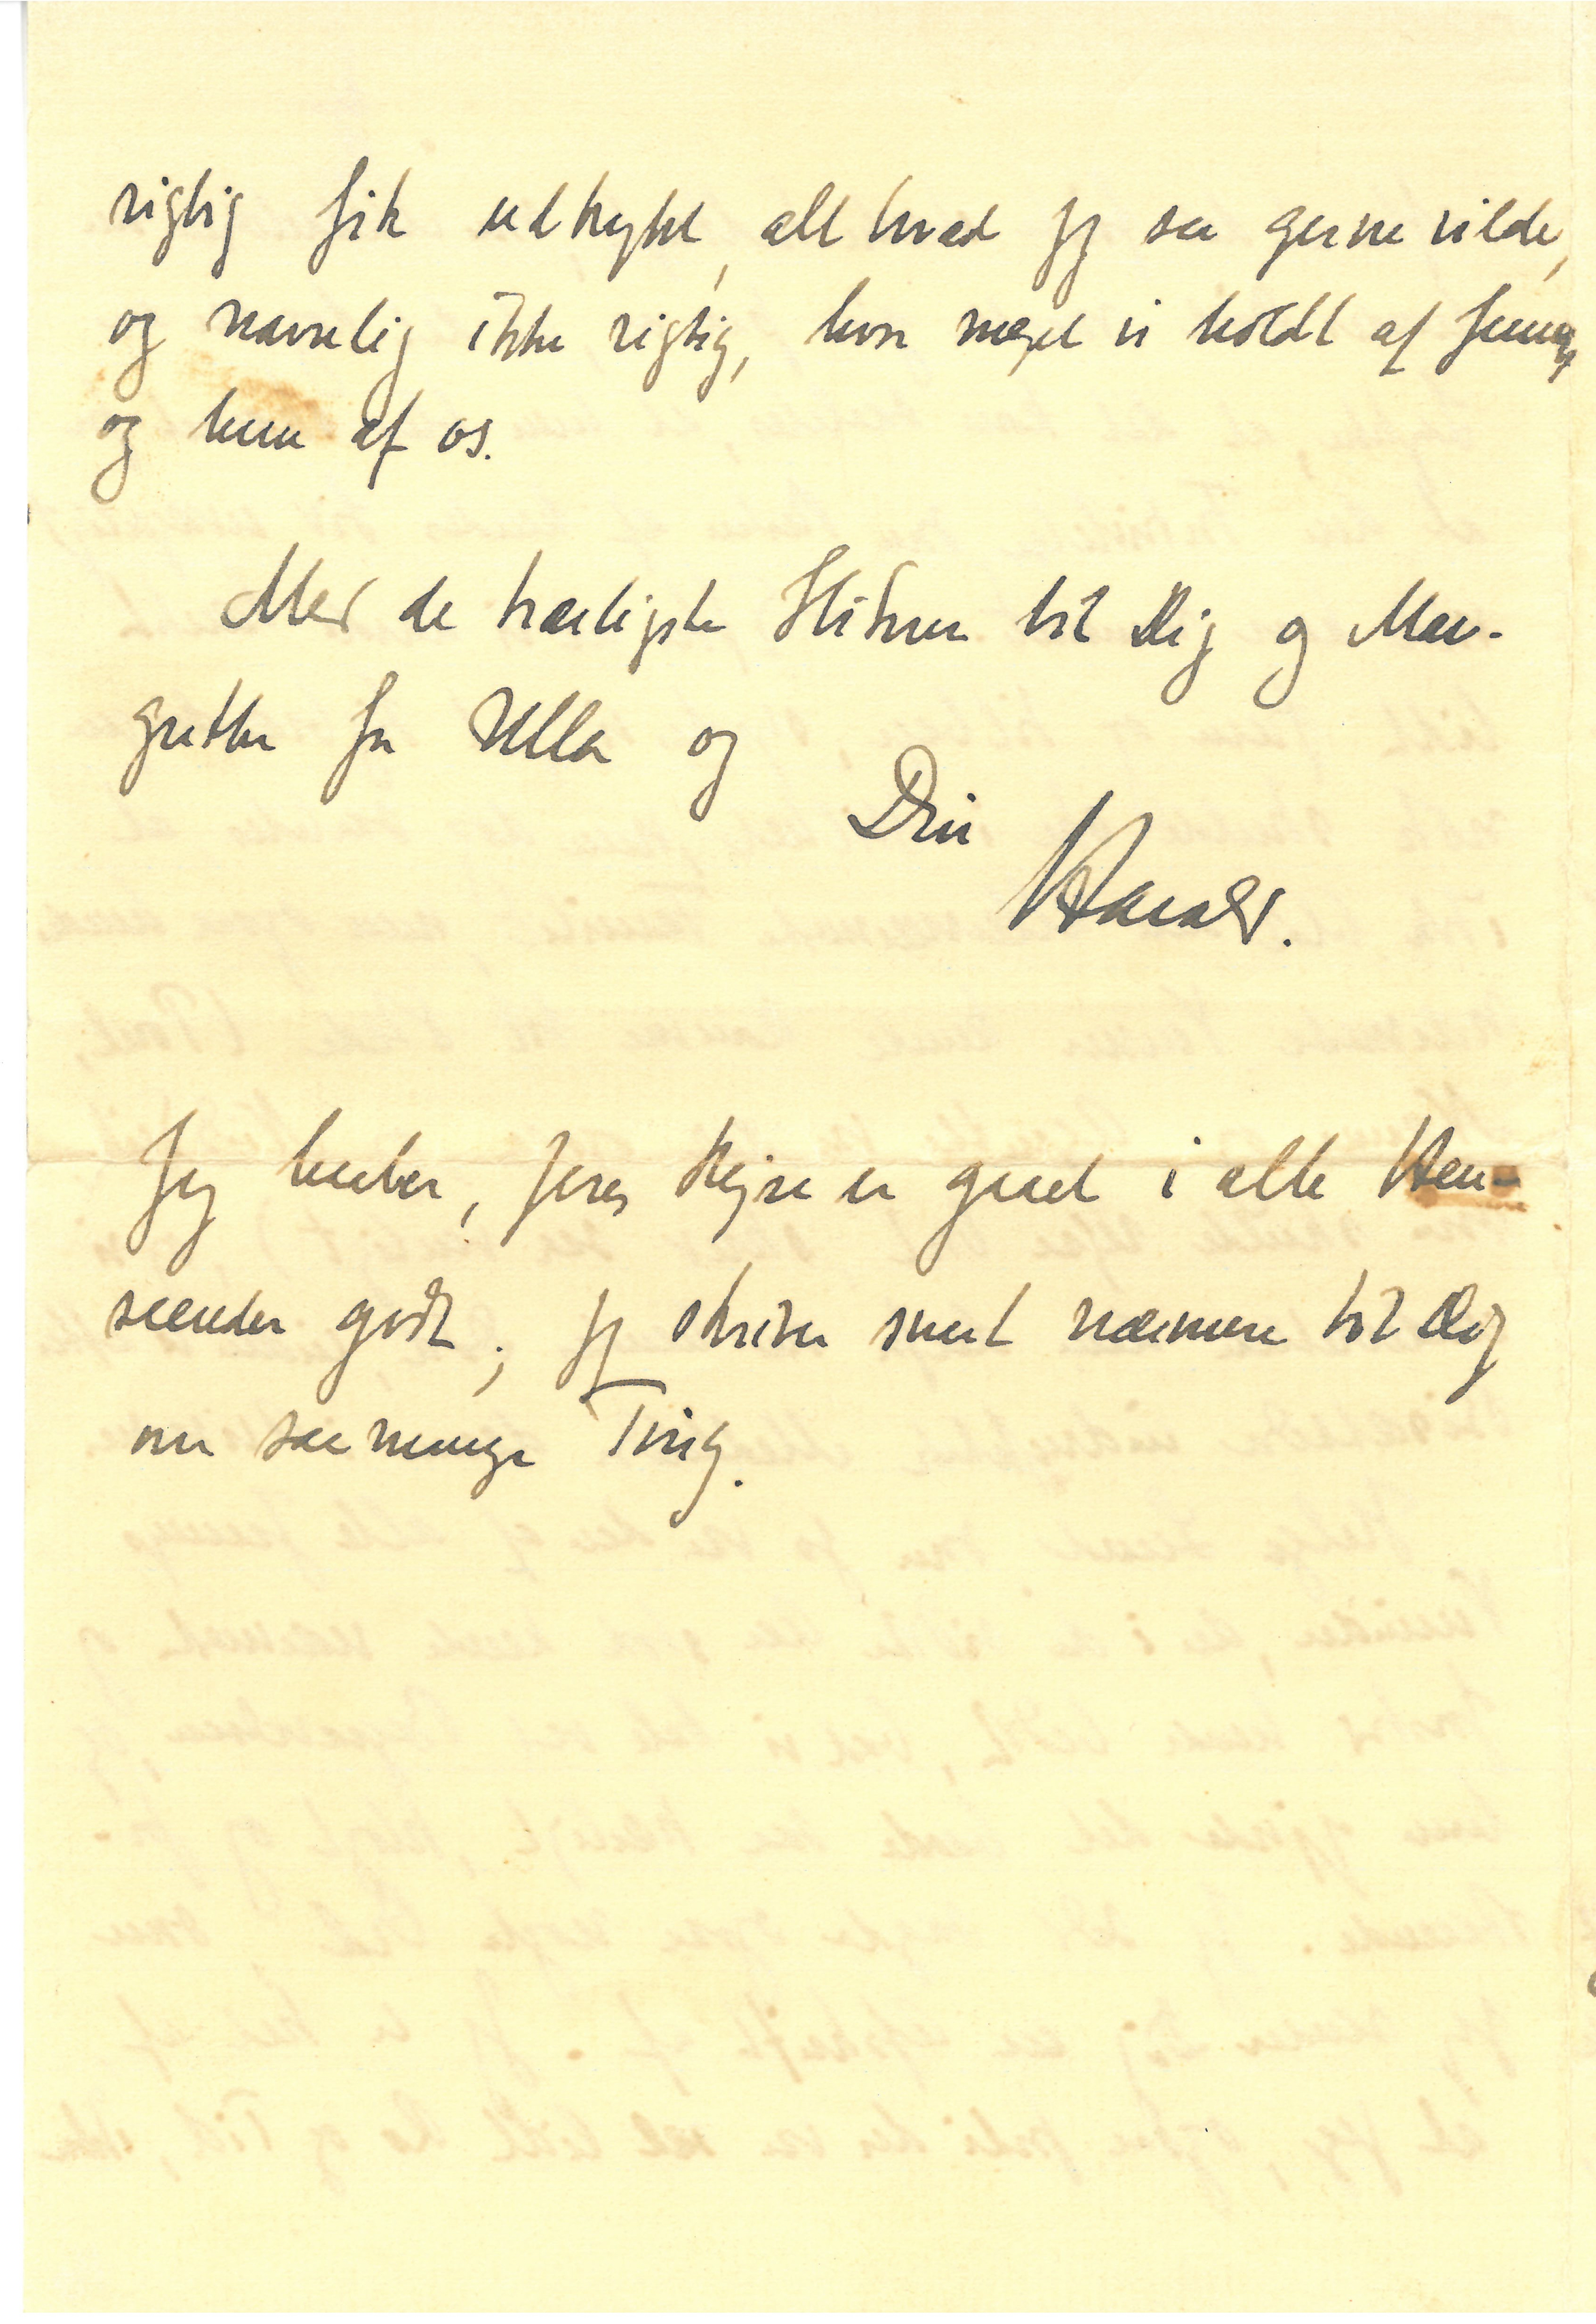 rigtig fik udtrykt, alt hvad jeg saa gerne vilde,
og navnlig ikke rigtig, hvor meget vi holdt af Jenny,
og hun af os.
Med de kærligste Hilsner til Dig og Mar-
grethe fra Ulla og
Din
Harald.
Jeg haaber, Jeres Rejse er gaaet i alle Hen-
seender godt; jeg skriver snart nærmere til Dig
om saa mange Ting.